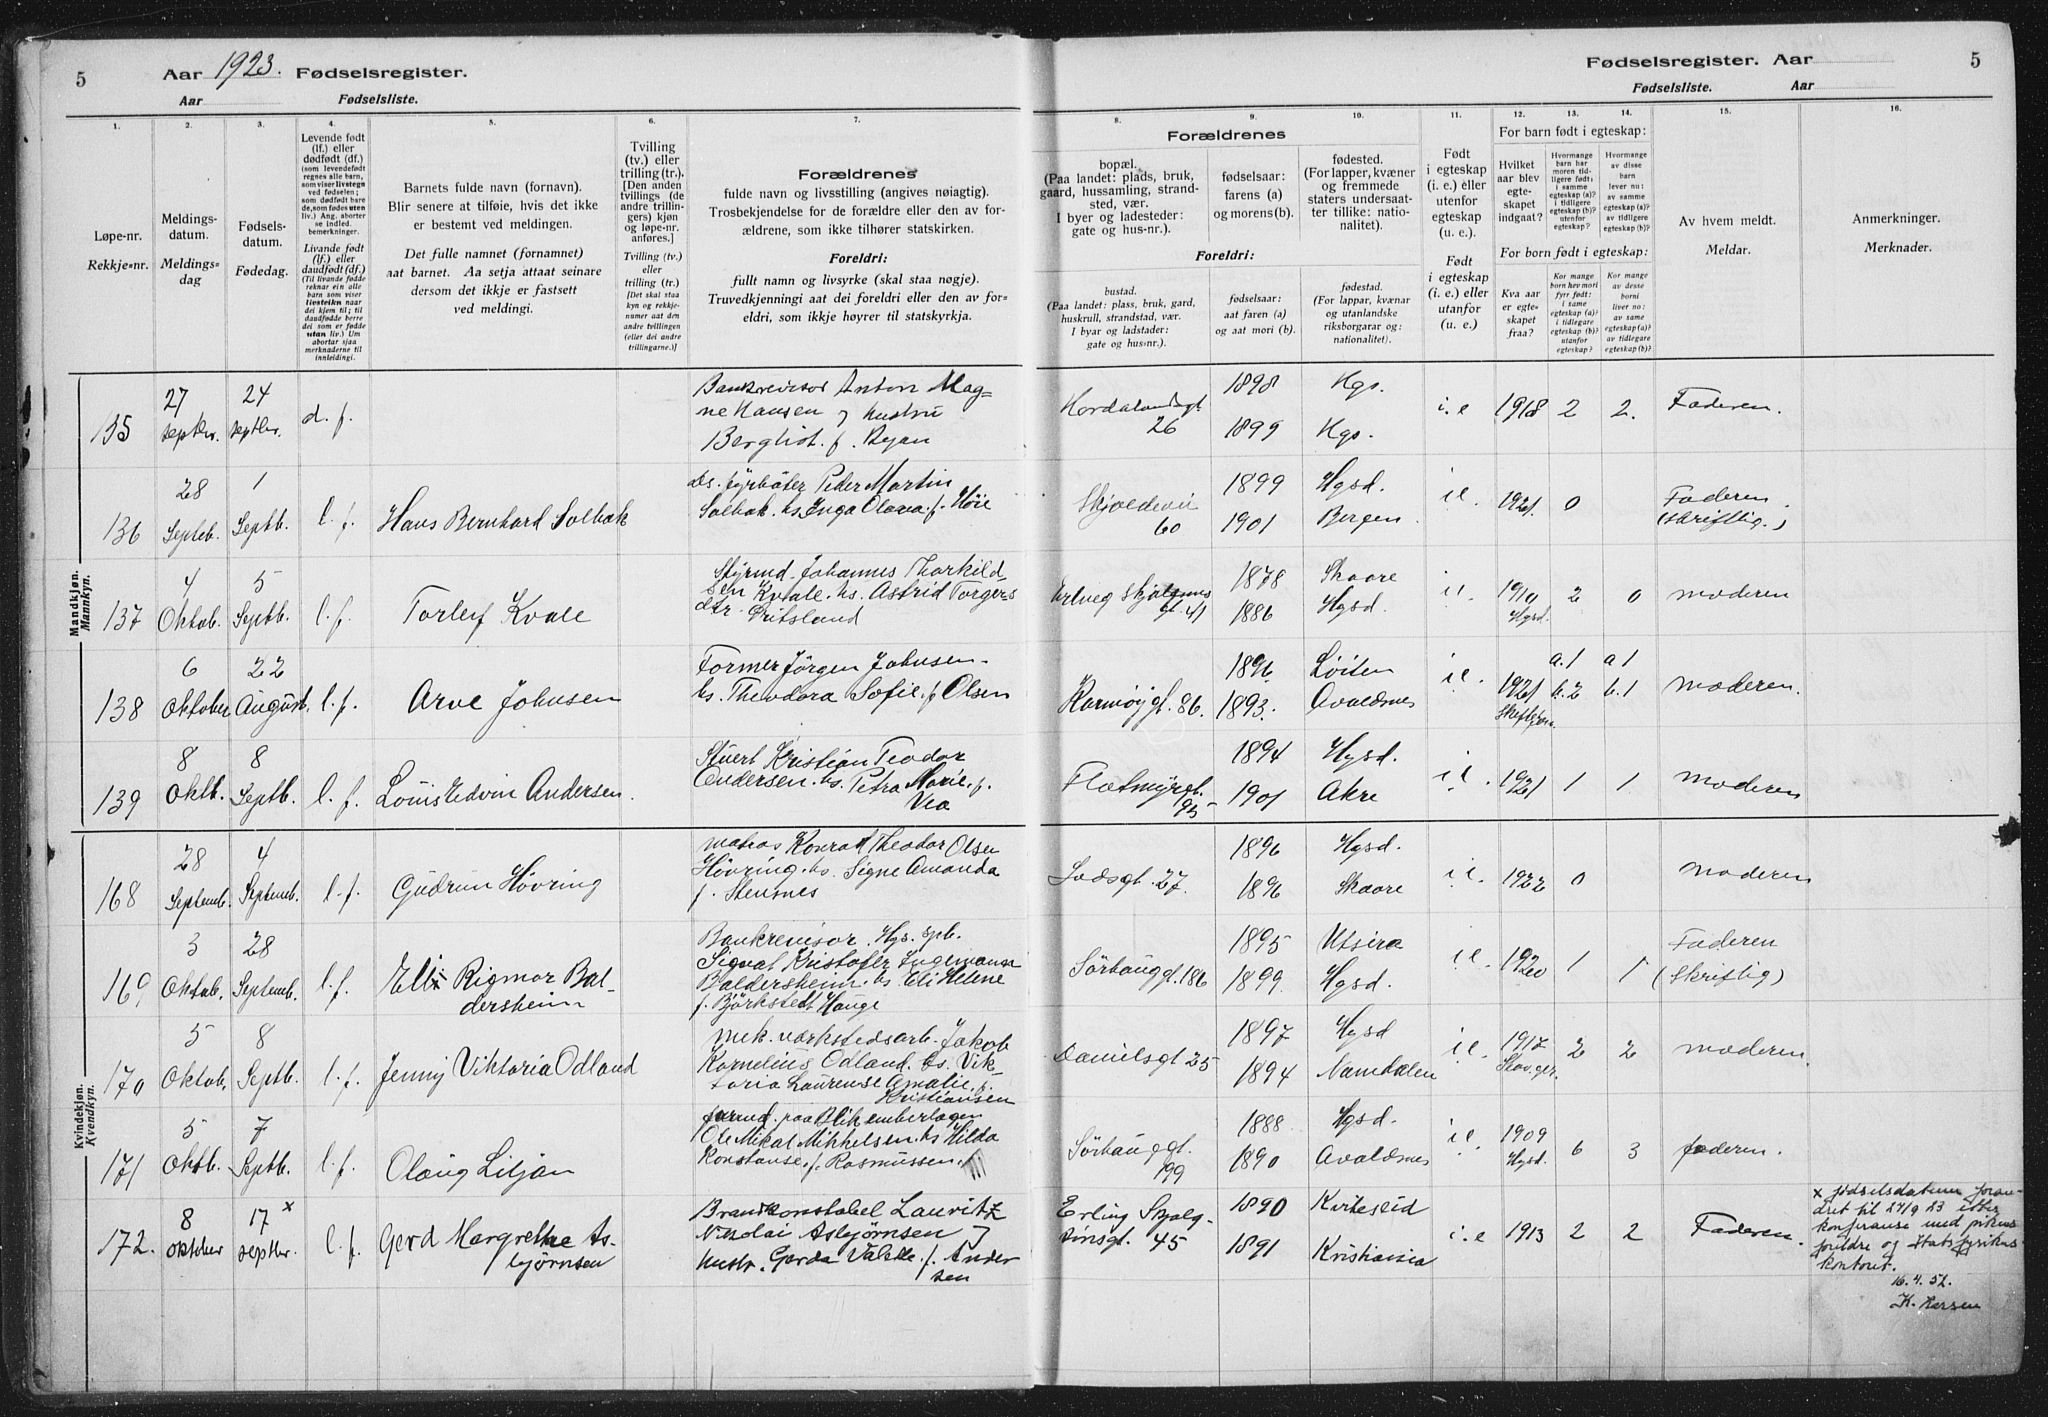 5
Aar 1923. Fødselsregister.
Aar Fødselsliste.
Fødselsregister. Aar
5
Fødselsliste. Aar
1.
Løpe-nr.
Rekkje-nr.
2.
Meldings-
datum.
Meldings-
dag
3.
Fødsels-
datum.
Fødedag.
4.
Levende født
(lf.) eller
dødfødt (df.)
(som levendefødt
regnes alle barn,
som viser livstegn
ved fødselen;
som dødfødt bare
de, som fødes uten
liv.) Ang. aborter
se indled.
bemerkninger.
Livande født
(lf.) eller
daudfødt (df.)
(Til livande fødde
reknar ein alle
barn som viser
livsteikn naar
dei kjem til; til
daudfødde berre
dei som er fødde
utan liv.) Um
abortar sjaa
merknaderne til
innleidingi.
5.
Barnets fulde navn (fornavn).
Blir senere at tilføie, hvis det ikke
er bestemt ved meldingen.
Det fulle namnet (fornamnet)
aat barnet. Aa setja attaat seinare
dersom det ikkje er fastsett
ved meldingi.
6.
Tvilling
(tv.) eller
trilling (tr.).
[Den anden
tvillings (de
andre trillin-
gers) kjøn
og løpe-nr.
anføres.]
Tvilling (tv.)
eller
trilling (tr.)
[Det skal staa
kyn og rekkje-
numer aat den
andre tvillingen
(eller dei andre
trillingarne.)]
7.
Forældrenes
fulde navn og livsstilling (angives nøiagtig).
Trosbekjendelse for de forældre eller den av for-
ældrene, som ikke tilhører statskirken.
Foreldri:
fullt namn og livsyrke (skal staa nøgje).
Truvedkjenningi aat dei foreldri eller den av for-
eldri, som ikkje høyrer til statskyrkja.
Forældrenes
8.
bopæl.
(Paa landet: plads, bruk,
gaard, hussamling, strand-
sted, vær.
I byer og ladesteder:
gate og hus-nr.).
9.
fødselsaar:
farens (a)
og morens (b).
10.
fødested.
(For lapper, kvæner
og fremmede
staters undersaat-
ter tillike: natio-
nalitet).
Foreldri:
bustad.
(Paa landet: plass, bruk, gard,
huskrull, strandstad, vær.
I byar og ladstader:
gate og hus-nr.).
fødselsaar:
aat faren (a)
og aat mori (b).
fødestad.
(For lappar, kvænar
og utanlandske
riksborgarar og:
nationalitet).
11.
Født
i egteskap
(i. e.) eller
utenfor
egteskap
(u. e.).
Født
i egteskap
(i. e.) eller
utanfor
(u. e.).
For barn født i egteskap:
12.
Hvilket
aar blev
egte-
skapet
indgaat?
13.
Hvormange
barn har
moren tid-
ligere født:
i samme
egteskap (a)?
i tidligere
egteskap (b)?
utenfor
egteskap?
14.
Hvormange
av disse
barn
lever nu:
av samme
egteskap (a)?
av tidligere
egteskap (b)?
For barn født i egteskap:
Kva aar
er egte-
skapet
fraa?
Kor mange
born hev mori
fyrr født:
i same
egteskap (a)?
i tidlegare
egteskap (b)?
utanfor
egteskap?
Kor mange
av desse
borni
liver no:
av same
egteskap (a)?
av tidlegare
egteskap (b)?
15.
Av hvem meldt.
Meldar.
16.
Anmerkninger.
Merknader.
Mandkjøn.
Mannkyn.
135 27 septbr. 24 septbr. d. f.
Bankrevisor Anton Mag=
ne Hansen og hustru
Bergliot f.
Hordalandsgt 26 1898 1899 Hgs. Hgs. i. e 1918 2 2. Faderen.
136 28 Septeb. 1 Septb. l. f. Hans Bernhard Solbak
Ds. fyrböter Peder Martin
Solbak. hs Inga Olava. f. Höie
60 1899 1901 Hgsd. Bergen. i e. 1921. 0 Faderen (skriftlig.)
137 4 Oktob. 5 Septb. l. f. Torleif Kvale
Styrmd. Johannes Thorkild
sen Kvale. hs. Astrid Torgers
dtr. Øritsland
41 1878 1886 Skaare Hgsd. i e. 1910 Hgsd. 2 0 moderen
138 6 Oktober 22 August l. f. Arve Johnsen
Former Jörgen Johnsen.
hs. Theodora Sofie. f Olsen
Karmöygt. 86. 1896. 1893. Löiten Avaldsnes i e. 1921 a. 1 b. 2 a 1 b. 1 moderen.
139 8 Oktb. 8 Septb. l. f. Louis Edvin Andersen.
Stuert Kristian Teodor
Andersen. hs. Petra Marie. f.
Vea
Flotmyrgt. 95 1894 1901 Hgsd. Akre i e. 1921 1 1 moderen
Kvindekjøn.
Kvendkyn.
168 28 Septemb. 4 Septemb. l. f. Gudrun Hövring
matros Konrad Theodor Olsen
Hövring. hs. Signe Amanda
f. Stensnes
27. 1896 1896 Hgsd. Skaare i e. 1922 0 moderen
169 3 Oktob. 28 Septemb. l. f. Elli Rigmor Bal-
dersheim
Bankrevisor. Hgs. spb.
Sigvat Kristofer Ingemann
Baldersheim. hs Eli Helene
f. Björkstedt Hauge
Sörhauggt. 186 1895 1899. Utsira Hgsd. i e. 1920 1 1 Faderen (Skriftlig)
170 5 Oktob. 8 Septb. l. f. Jenny Viktoria Odland
mek. værkstedsarb. Jakob
Kornelius Odland. hs. Vik-
toria Laurense Amalie. f.
Kristiansen
Danielsgt 25 1897 1894 Hgsd Namdalen i e. 1917 2 2 moderen.
171 5 Oktb. 7 Septb. l. f. Olaug Liljan
formd. paa Blikemberlagen
Ole Mikal Mikkelsen. hs Hilda
Konstanse. f. Rasmussen.
Sörhauggt. 199 1888. 1890 Hgsd. Avaldsnes i e. 1909 Hgsd. 6 3 faderen.
172. 8 oktober 17 x septbr. l. f. Gerd Margrethe As-
bjørnsen
Brandkonstabel Lauritz
Nikolai Asbjørnsen og
hustr. Gerda f. Ander
sen
Erling Skjalg-
sønsgt. 45 1890 1891 Kviteseid Kristiania i. e 1913 2 2 Faderen.
x fødselsdatum foran-
dret til 27/9 23 etter
konferanse med pikens
foreldre og
kontoret.
16. 4. 52.